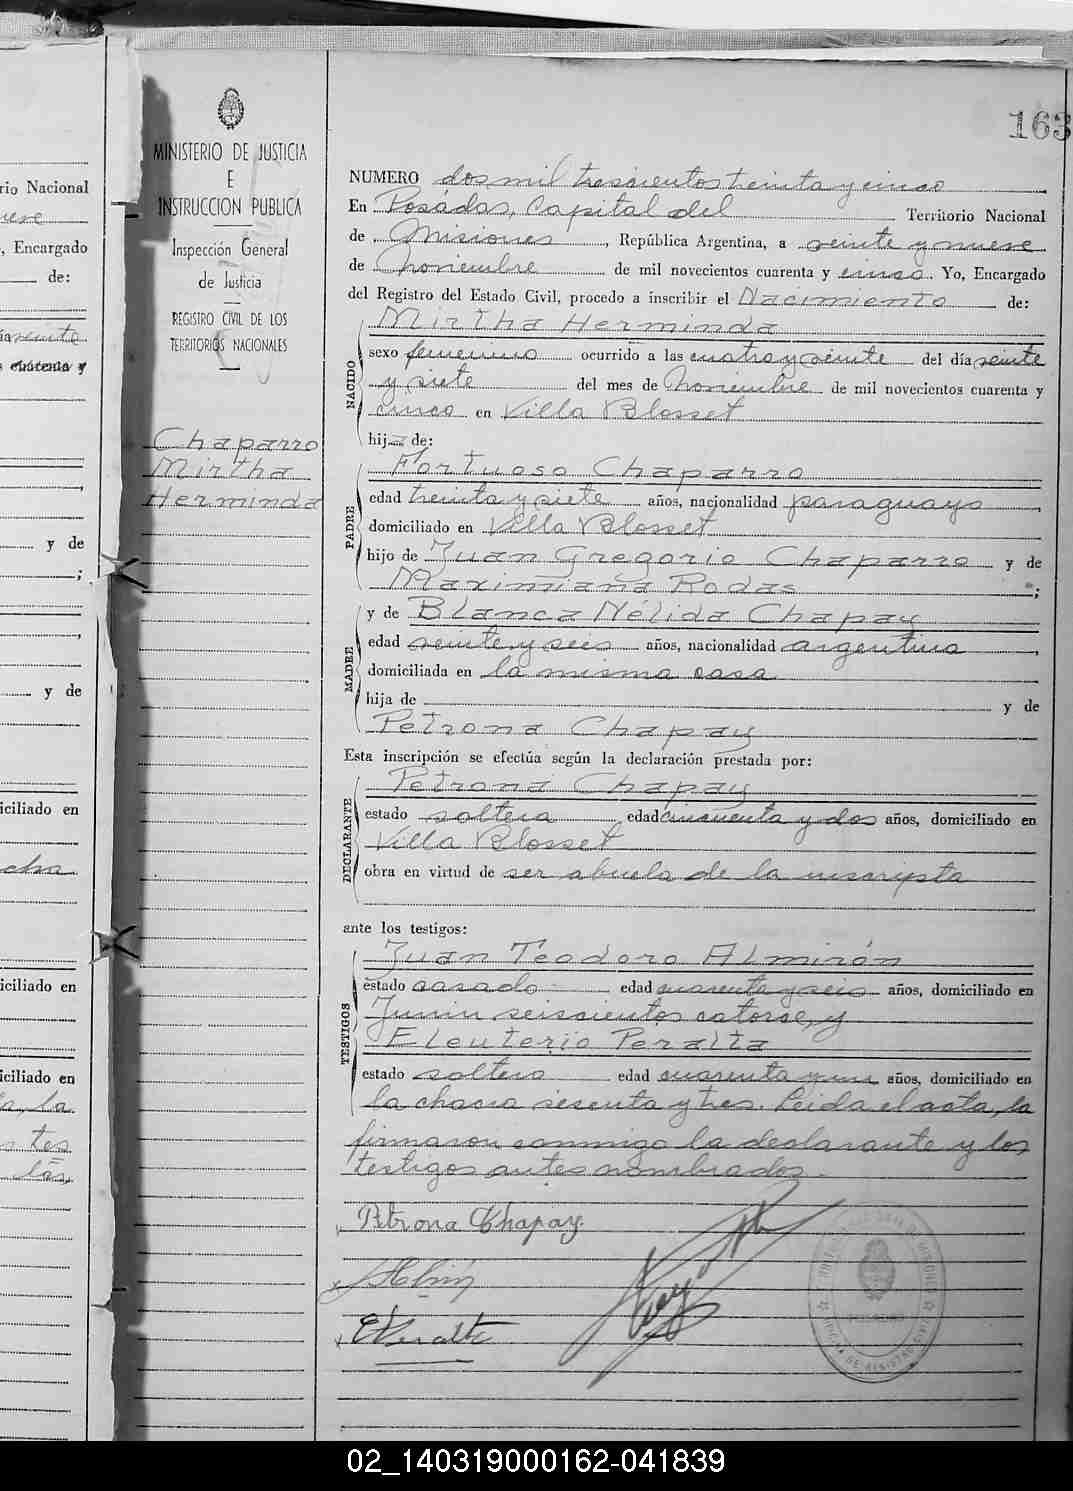 163
MINISTERIO DE JUSTICIA
E
INSTRUCCION PUBLICA
Inspección General
de Justicia
REGISTRO CIVIL DE LOS
TERRITORIOS NACIONALES
Chaparro
Mirtha
Herminda
NUMERO dos mil trescientos treinta y cinco
En Posadas, Capital del Territorio Nacional
de Misiones, República Argentina, a veinte y nueve
de noviembre de mil novecientos cuarenta y cinco. Yo, Encargado
del Registro del Estado Civil, procedo a inscribir el Nacimiento de:
Mirtha Herminda
NACIDO
sexo femenino ocurrido a las cuatro y veinte del día veinte
y siete del mes de Noviembre de mil novecientos cuarenta y
cinco en Villa Blosset
hija de:
Fortuoso Chaparro
PADRE
edad treinta y siete años, nacionalidad paraguayo,
domiciliado en Villa Blosset
hijo de Juan Gregorio Chaparro y de
Maximiana Rodas;
y de Blanca Nélida Chapay
MADRE
edad veinte y seis años, nacionalidad argentina,
domiciliada en la misma casa
hija de y de
Petrona Chapay
Esta inscripción se efectúa según la declaración prestada por:
Petrona Chapay
DECLARANTE
estado soltera, edad cincuenta y dos años, domiciliado en
Villa Blosset
obra en virtud de ser abuela de la inscripta
ante los testigos:
Juan Teodoro Almirón
TESTIGOS
estado casado edad cuarenta y seis años, domiciliado en
Junin seiscientos catorce, y
Eleuterio Peralta
estado soltero edad cuarenta y un años, domiciliado en
la chacra sesenta y tres. Leida el acta, la
firmaron conmigo la declarante y los
testigos antes nombrados.
Petrona Chapay
EPeralta
rio Nacional
, Encargado
de:
y de
;
y de
iciliado en
cha
iciliado en
iciliado en
02_140319000162-041839